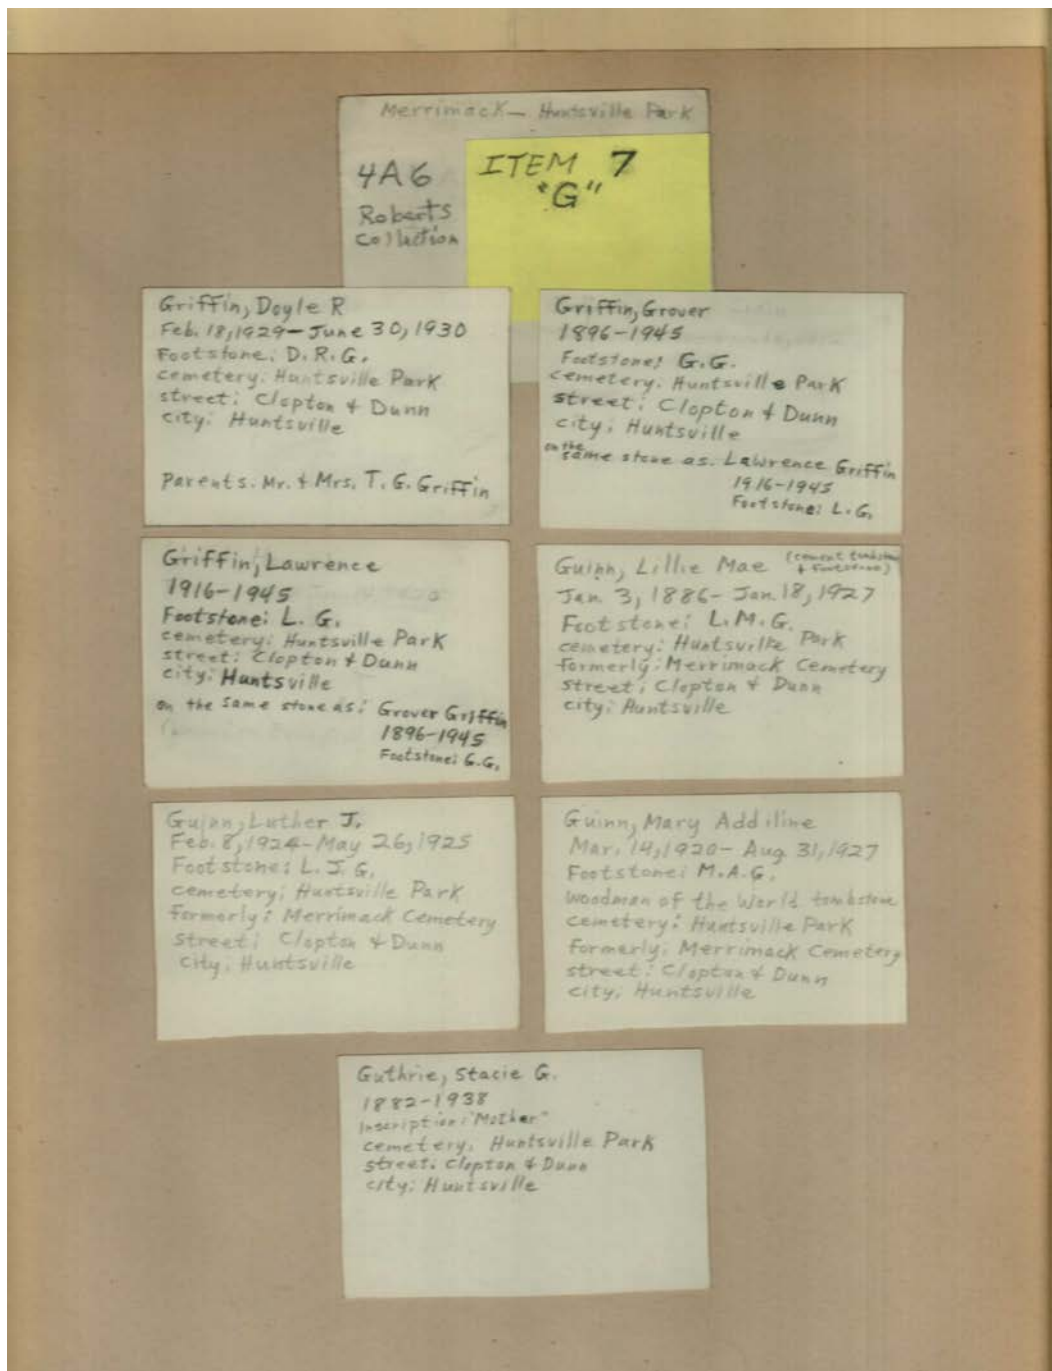 Merrimack - Huntsville Park
4A6
Roberts
Collection
ITEM 7
"G"
Griffin, Doyle R
Feb. 18, 1929 - June 30, 1930
Footstone: D.R.G.
cemetery: Huntsville Park
street: Clopton + Dunn
city: Huntsville
Parents: Mr. + Mrs. T. G. Griffin
Griffin, Grover
1896-1945
Footstone: G.G.
cemetery: Huntsville Park
street: Clopton + Dunn
city: Huntsville
on the same stone as: Lawrence Griffin
1916-1945
Footstone: L.G.
Griffin, Lawrence
1916-1945
Footstone: L. G.
cemetery: Huntsville Park
street: Clopton + Dunn
city: Huntsville
on the same stone as: Grover Griffin
1896-1945
Footstone: G.G.
Guinn, Lillie Mae (cement tombstone
+ footstone)
Jan. 3, 1886 - Jan. 18, 1927
Footstone: L.M.G.
cemetery: Huntsville Park
formerly: Merrimack Cemetery
street: Clopton + Dunn
city: Huntsville
Guinn, Luther J.
Feb. 8, 1924 - May 26, 1925
Footstone: L.J.G.
cemetery: Huntsville Park
formerly: Merrimack Cemetery
street: Clopton + Dunn
city: Huntsville
Guinn, Mary Addiline
Mar. 14, 1920 - Aug 31, 1927
Footstone: M.A.G.
Woodman of the World tombstone
cemetery: Huntsville Park
formerly: Merrimack Cemetery
street: Clopton + Dunn
city: Huntsville
Guthrie, Stacie G.
1882-1938
Inscription: "Mother"
cemetery: Huntsville Park
street: Clopton + Dunn
city: Huntsville